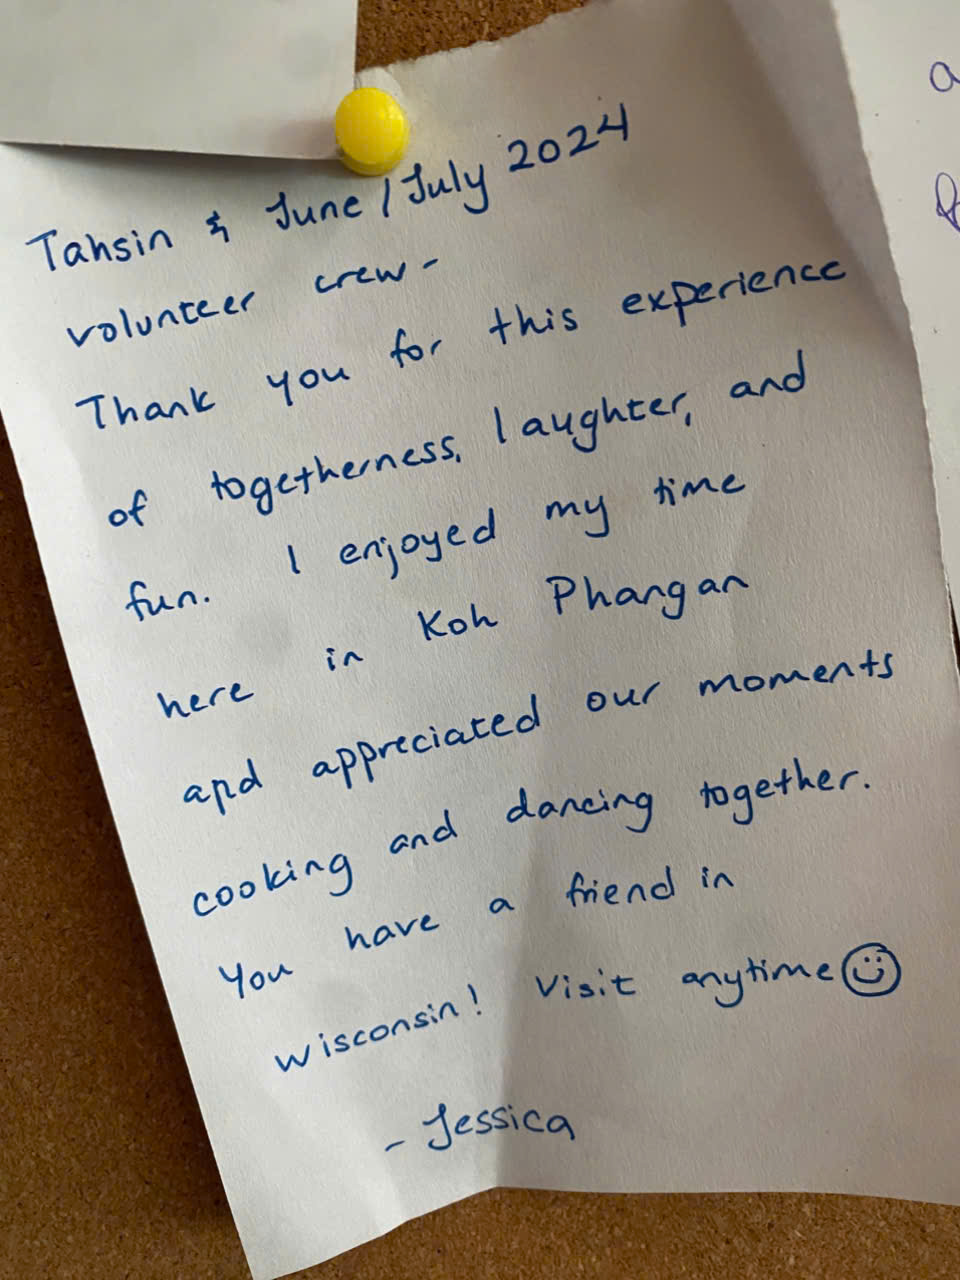 Tahsin & June/July 2024
volunteer crew-
Thank you for this experience
of togetherness, laughter, and
fun. I enjoyed my time
here in Koh Phangan
and appreciated our moments
cooking and dancing together.
You have a friend in
wisconsin! Visit anytime ☺
- Jessica